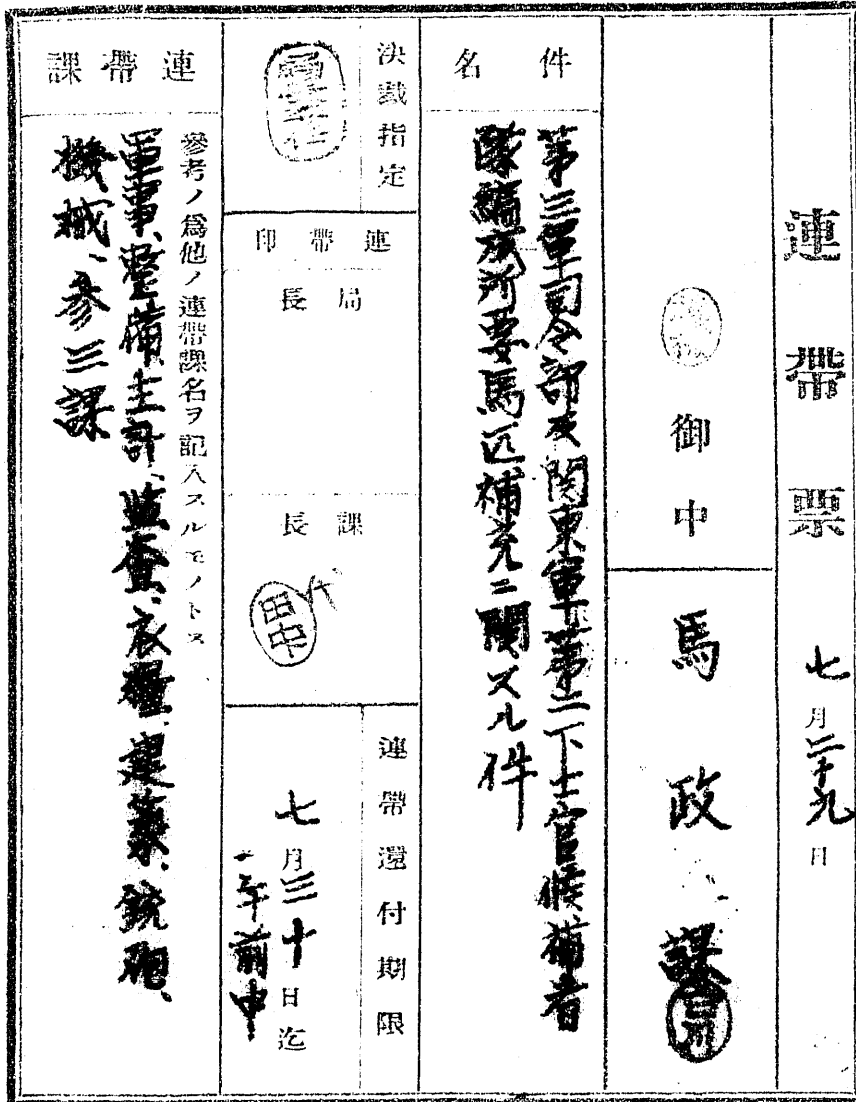 連帶票 七月二十九日
御中
馬政課
件名
第三軍司令部及関東軍第二下士官候補者
隊編成所要馬匹補充ニ関スル件
決裁指定
連帶印
局長
課長
代
田中
連帶還付期限
七月三十日迄
午前中
連帶課
參考ノ爲他ノ連帶課名ヲ記入スルモノトス
軍事、整備、主計、監査、衣糧、建築、銃砲、
機械、参三課